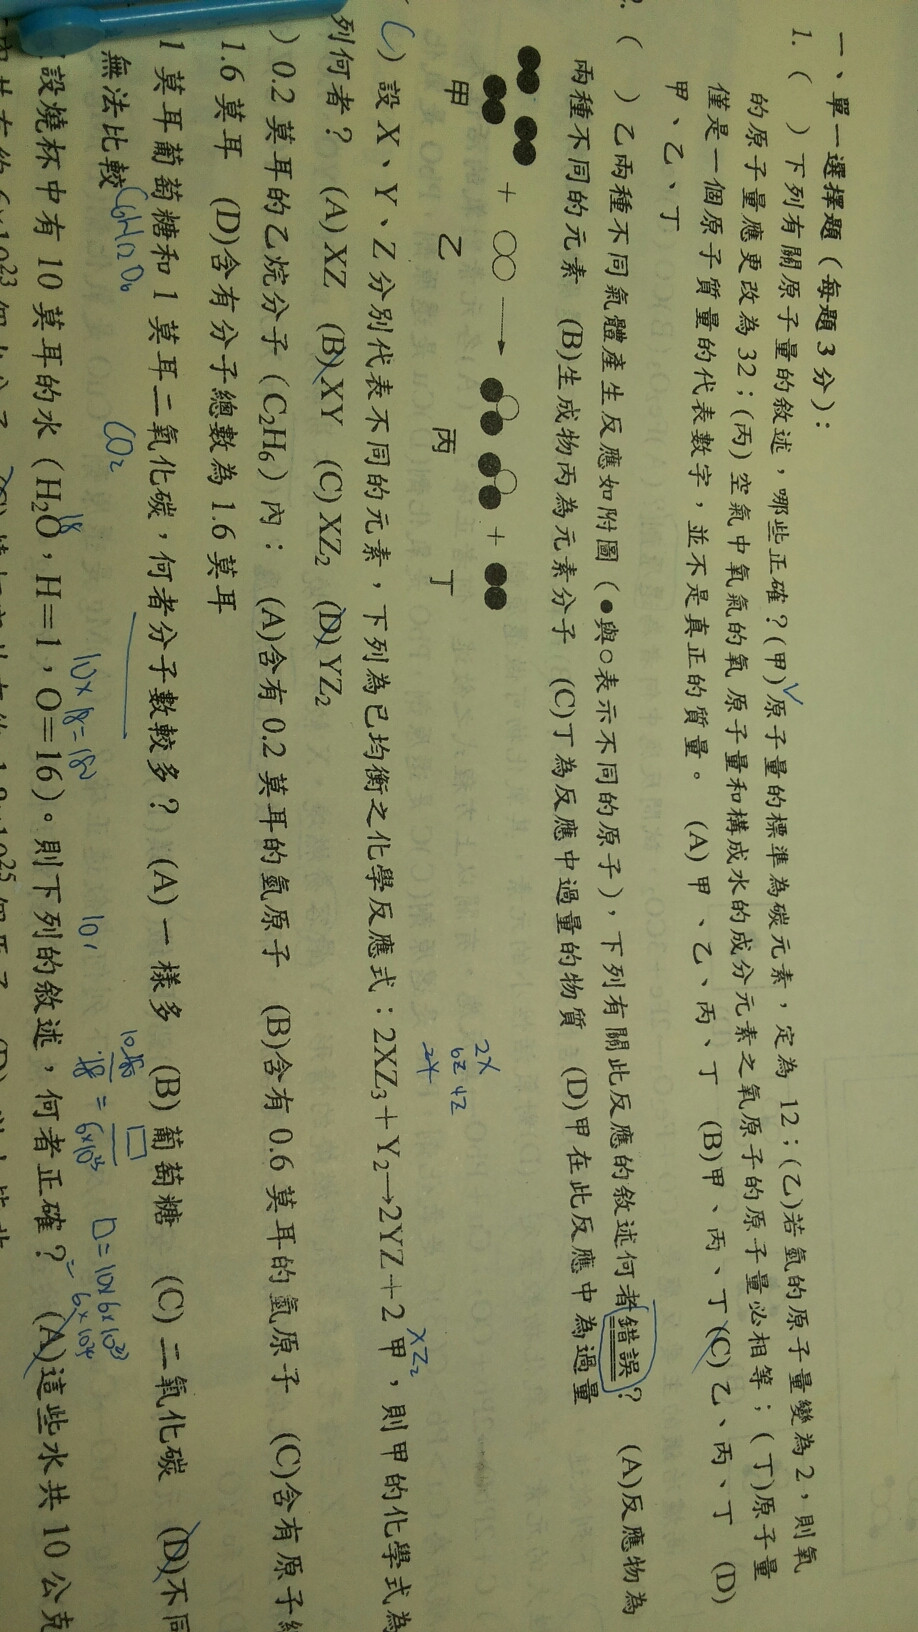 一、單一選擇題（每題3分）：
1. (　) 下列有關原子量的敘述，哪些正確？(甲)原子量的標準為碳元素，定為12；(乙)若氫的原子量變為2，則氧
的原子量應更改為32；(丙)空氣中氧氣的氧原子量和構成水的成分元素之氧原子的原子量必相等；(丁)原子量
僅是一個原子質量的代表數字，並不是真正的質量。 (A)甲、乙、丙、丁 (B)甲、丙、丁 (C)乙、丙、丁 (D)
甲、乙、丁
(　) 乙兩種不同氣體產生反應如附圖（●與○表示不同的原子），下列有關此反應的敘述何者錯誤？ (A)反應物為
兩種不同的元素 (B)生成物丙為元素分子 (C)丁為反應中過量的物質 (D)甲在此反應中為過量
+ → +
甲 乙 丙 丁
2X
6Z 4Z
2Y
XZ2
) 設X、Y、Z分別代表不同的元素，下列為已均衡之化學反應式：2XZ3＋Y2→2YZ＋2甲，則甲的化學式為
列何者？ (A)XZ (B)XY (C)XZ2 (D)YZ2
) 0.2莫耳的乙烷分子（C2H6）內： (A)含有0.2莫耳的氫原子 (B)含有0.6莫耳的氫原子 (C)含有原子
1.6莫耳 (D)含有分子總數為1.6莫耳
1莫耳葡萄糖和1莫耳二氧化碳，何者分子數較多？ (A)一樣多 (B)葡萄糖 (C)二氧化碳 (D)不同
無法比較
C6H12O6 CO2
18
10×18=180
□=10×6×10²³
設燒杯中有10莫耳的水（H2O，H=1，O=16）。則下列的敘述，何者正確？ (A)這些水共10公克